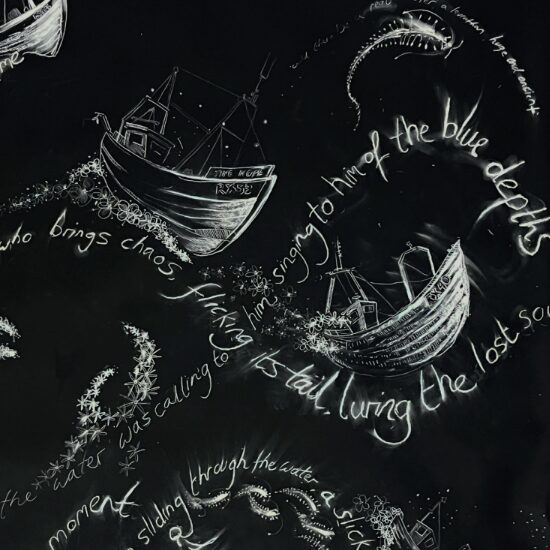 me
for a
who brings chaos, flicking its tail. luring the lost sou
the water was calling to him singing to him of the blue depths
moment
sliding through the water. a slick